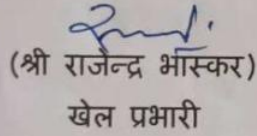 (श्री राजेन्द्र भास्कर)
खेल प्रभारी